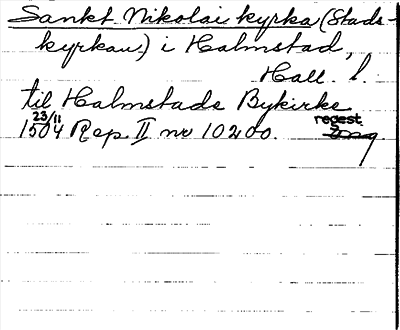 Sankt Nikolai kyrka (Stads-
kyrkan) i Halmstad,
Hall. l.
til Halmstade Bykirke
23/11
1504 Rep II nr 10200. regest.